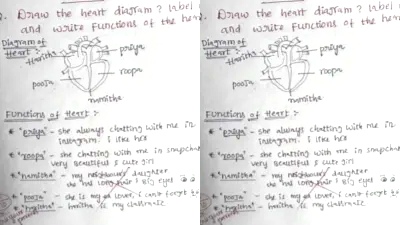 Draw the heart diagram? label
and write Functions of the
Diagram of
Heart :-
Haritha
priya
roopa
pooja
namitha
Functions of Heart :-
* "priya" - she always chatting with me in
instagram. i like her
* "roopa" - she chatting with me in snapchat
very beautiful & cute girl
* "namitha" - my neighbours daughter
she has long hair, Big eyes
* "pooja" - she is my lover, i can't forget
* "haritha" - haritha is my classmate
Draw the heart diagram? label
and write Functions of the
Diagram of
Heart :-
Haritha
priya
roopa
pooja
namitha
Functions of Heart :-
* "priya" - she always chatting with me in
instagram. i like her
* "roopa" - she chatting with me in snapchat
very beautiful & cute girl
* "namitha" - my neighbours daughter
she has long hair, Big eyes
* "pooja" - she is my lover, i can't forget
* "haritha" - haritha is my classmate